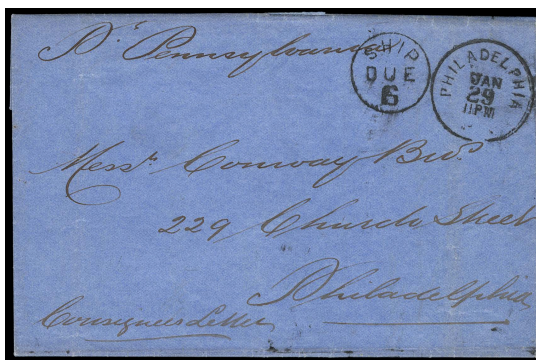 Pr Pennsylvania
SHIP
DUE
6
PHILADELPHIA
JAN
29
11PM
Messrs. Conway Bros.
229 Church Street
Philadelphia
Consignees Letter